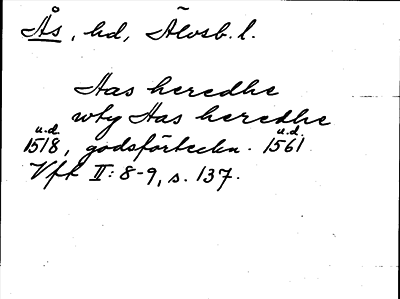 Ås, hd, Älvsb. l.
Aas heredhe
wty Aas heredhe
u.d. u.d.
1518, godsförteckn. 1561
Vft II: 8-9, s. 137.